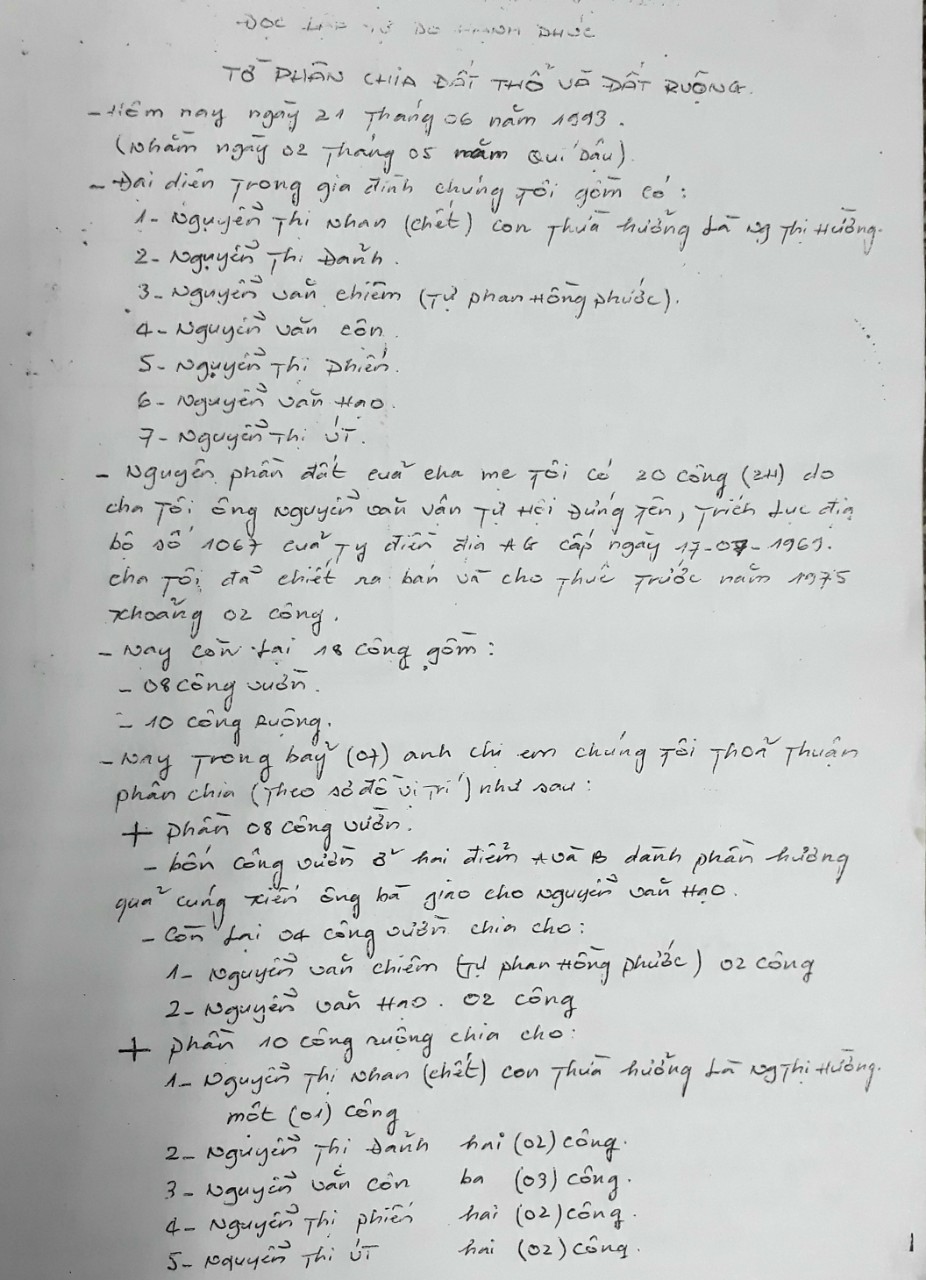 ĐỘC LẬP TỰ DO HẠNH PHÚC
TỜ PHÂN CHIA ĐẤT THỔ VÀ ĐẤT RUỘNG.
- Hôm nay ngày 21 tháng 06 năm 1993.
(Nhằm ngày 02 tháng 05 năm Quí Dậu).
- Đại diện trong gia đình chúng tôi gồm có:
1- Nguyễn Thị Nhan (chết) con thừa hưởng là Ng Thị Hường.
2- Nguyễn Thị Đảnh.
3- Nguyễn văn chiêm (tự phan Hồng phước).
4- Nguyễn văn côn.
5- Nguyễn Thị Phiến.
6- Nguyễn văn Hạo.
7- Nguyễn Thị ÚT.
- Nguyên phần đất của cha mẹ tôi có 20 công (2H) do
cha tôi ông Nguyễn văn vận tự Hội đứng tên, trích lục địa
bộ số 1067 của Ty điền địa AG cấp ngày 17-07-1969.
cha tôi đã chiết ra bán và cho thuê trước năm 1975
khoảng 02 công.
- Nay còn lại 18 công gồm:
- 08 công vườn.
- 10 công Ruộng.
- Nay trong bảy (07) anh chị em chúng tôi thoả thuận
phân chia (theo sơ đồ vị trí) như sau:
+ phần 08 công vườn.
- bốn công vườn ở hai điểm A và B dành phần hương
quả cúng kiến ông bà giao cho Nguyễn văn Hạo.
- Còn lại 04 công vườn chia cho:
1- Nguyễn văn chiêm (tự phan Hồng phước) 02 công
2- Nguyễn văn Hạo. 02 công
+ phần 10 công ruộng chia cho:
1- Nguyễn Thị Nhan (chết) con thừa hưởng là Ng Thị Hường.
một (01) công
2- Nguyễn Thị Đảnh hai (02) công.
3- Nguyễn văn côn ba (03) công.
4- Nguyễn Thị phiến hai (02) công.
5- Nguyễn Thị ÚT hai (02) công.
1